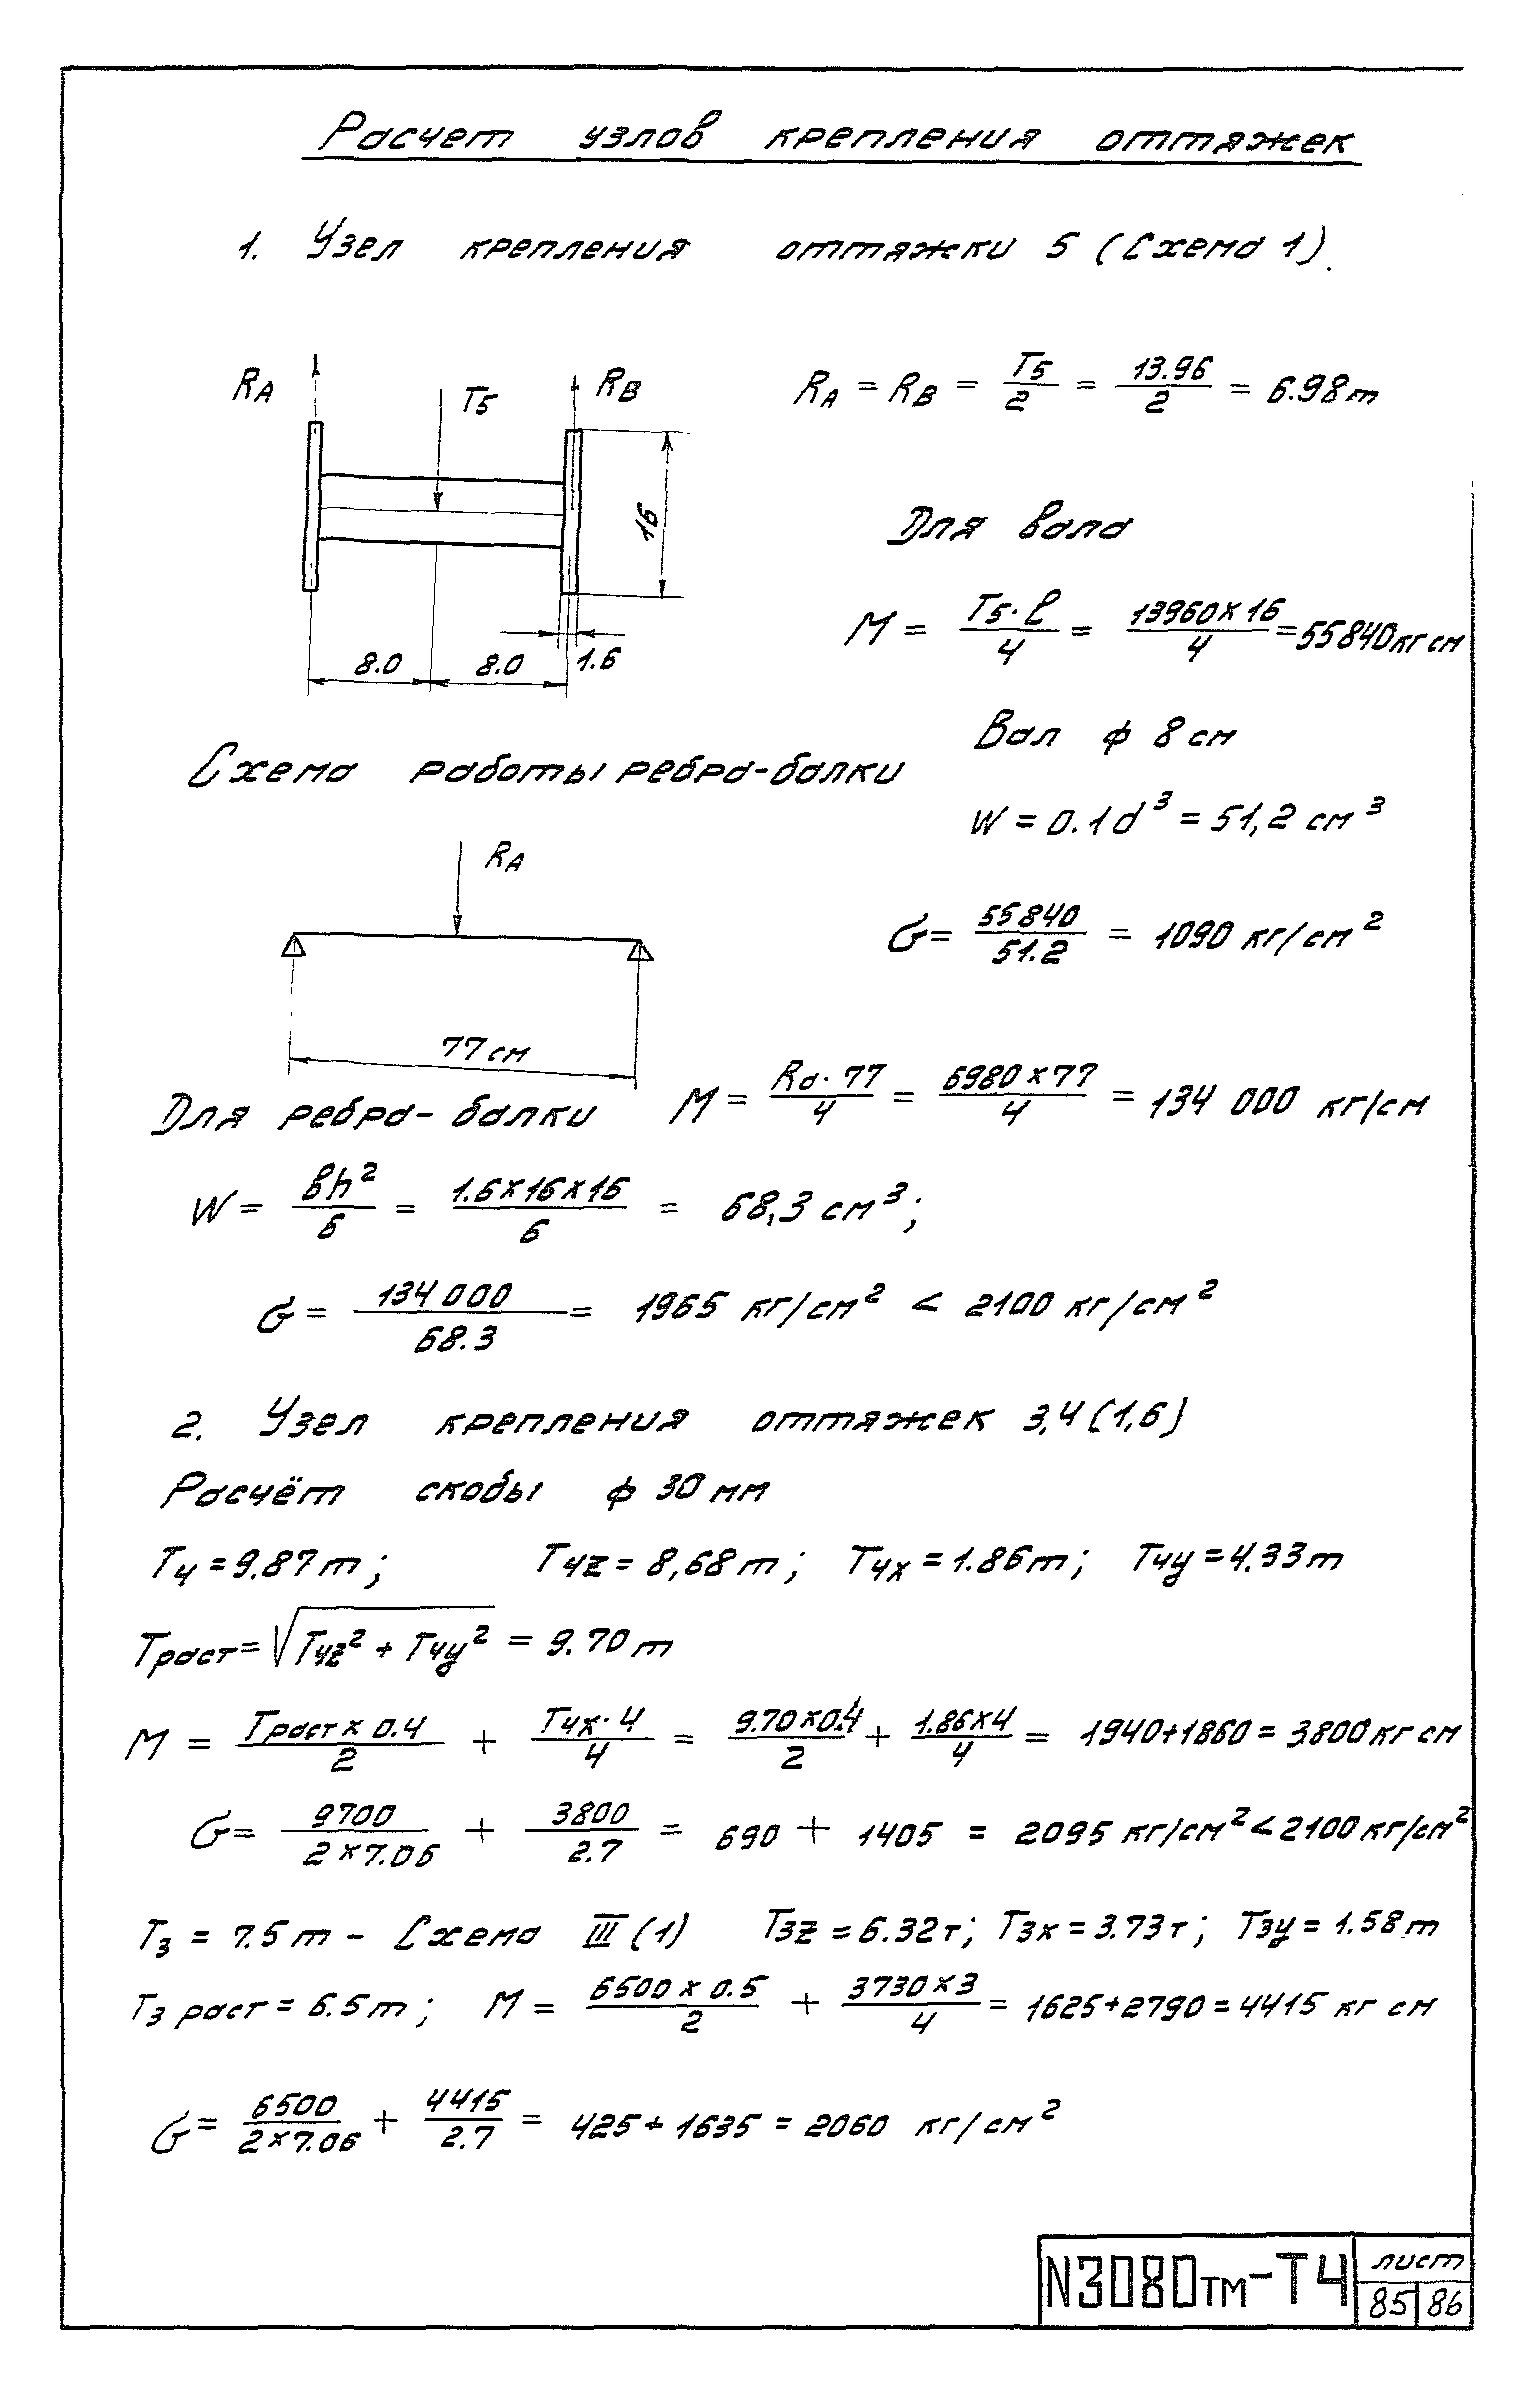 Расчет узлов крепления оттяжек
1. Узел крепления оттяжки 5 (Схема 1).
RA T5 RB
RA = RB = T5/2 = 13.96/2 = 6.98т
16
8.0 8.0 1.6
Для вала
M = T5·l/4 = 13960×16/4 = 55840кгсм
Вал ф 8см
W = 0.1d³ = 51,2 см³
G = 55840/51.2 = 1090 кг/см²
Схема работы ребра-балки
RA
77см
Для ребра-балки M = Ra·77/4 = 6980×77/4 = 134 000 кг/см
W = вh²/6 = 1.6×16×16/6 = 68,3 см³;
G = 134 000/68.3 = 1965 кг/см² < 2100 кг/см²
2. Узел крепления оттяжек 3,4 (1,6)
Расчёт скобы ф 30мм
T4 = 9.87т; T4z = 8,68т; T4x = 1.86т; T4y = 4.33т
Tраст = √T4z² + T4y² = 9.70т
M = Tраст × 0.4/2 + T4x·4/4 = 9.70×0.4/2 + 1.86×4/4 = 1940+1860 = 3800кгсм
G = 9700/2×7.06 + 3800/2.7 = 690 + 1405 = 2095 кг/см² < 2100кг/см²
T3 = 7.5т - Схема III (1) T3z = 6.32т; T3x = 3.73т; T3y = 1.58т
T3 раст = 6.5т; M = 6500 × 0.5/2 + 3730×3/4 = 1625+2790 = 4415 кг см
G = 6500/2×7.06 + 4415/2.7 = 425 + 1635 = 2060 кг/см²
N3080тм-Т4 лист
85 86